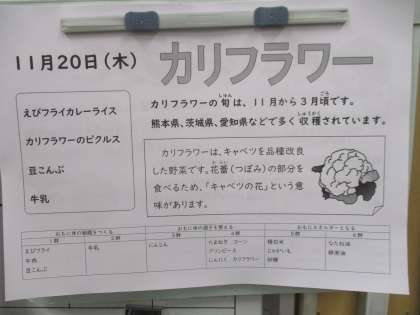 11月20日(木)
カリフラワー
えびフライカレーライス
カリフラワーのピクルス
豆こんぶ
牛乳
カリフラワーの旬は、11月から3月頃です。
熊本県、茨城県、愛知県などで多く収穫されています。
カリフラワーは、キャベツを品種改良
した野菜です。花蕾(つぼみ)の部分を
食べるため、「キャベツの花」という意
味があります。
おもに体の組織をつくる
おもに体の調子を整える
おもにエネルギーとなる
1群 2群 3群 4群 5群 6群
えびフライ 牛乳 にんじん たまねぎ コーン 精白米 なたね油
牛肉 グリンピース じゃがいも
豆こんぶ にんにく カリフラワー 砂糖